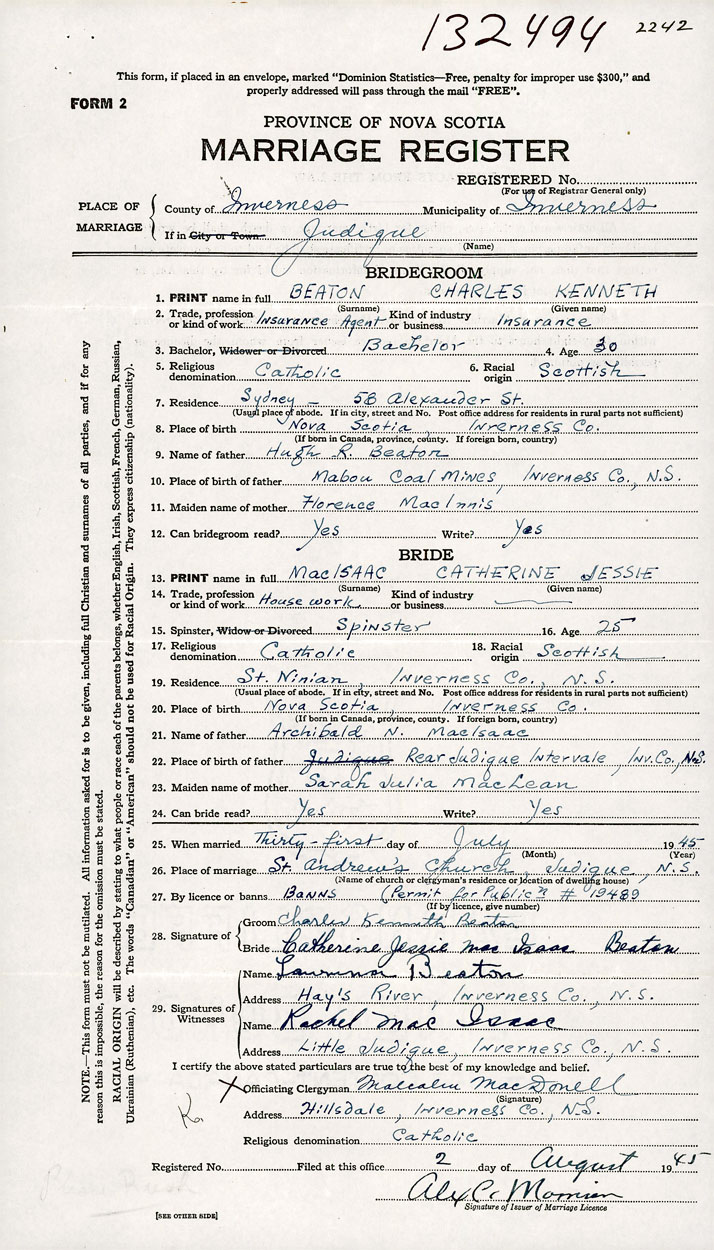 132494 2242
This form, if placed in an envelope, marked "Dominion Statistics—Free, penalty for improper use $300," and
properly addressed will pass through the mail "FREE".
FORM 2
PROVINCE OF NOVA SCOTIA
MARRIAGE REGISTER
REGISTERED No.
(For use of Registrar General only)
PLACE OF MARRIAGE
County of Inverness Municipality of Inverness
If in City or Town Judique
(Name)
BRIDEGROOM
1. PRINT name in full BEATON CHARLES KENNETH
(Surname) (Given name)
2. Trade, profession or kind of work Insurance Agent Kind of industry or business Insurance
3. Bachelor, Widower or Divorced Bachelor 4. Age 30
5. Religious denomination Catholic 6. Racial origin Scottish
7. Residence Sydney – 58 Alexander St.
(Usual place of abode. If in city, street and No. Post office address for residents in rural parts not sufficient)
8. Place of birth Nova Scotia, Inverness Co.
(If born in Canada, province, county. If foreign born, country)
9. Name of father Hugh R. Beaton
10. Place of birth of father Mabou Coal Mines, Inverness Co., N.S.
11. Maiden name of mother Florence MacInnis
12. Can bridegroom read? Yes Write? Yes
BRIDE
13. PRINT name in full MacISAAC CATHERINE JESSIE
(Surname) (Given name)
14. Trade, profession or kind of work House work Kind of industry or business
15. Spinster, Widow or Divorced Spinster 16. Age 25
17. Religious denomination Catholic 18. Racial origin Scottish
19. Residence St. Ninian, Inverness Co., N.S.
(Usual place of abode. If in city, street and No. Post office address for residents in rural parts not sufficient)
20. Place of birth Nova Scotia, Inverness Co.
(If born in Canada, province, county. If foreign born, country)
21. Name of father Archibald N. MacIsaac
22. Place of birth of father Judique Rear Judique Intervale, Inv. Co., N.S.
23. Maiden name of mother Sarah Julia MacLean
24. Can bride read? Yes Write? Yes
25. When married Thirty-first day of July 1945
(Month) (Year)
26. Place of marriage St. Andrew's Church, Judique, N.S.
(Name of church or clergyman's residence or location of dwelling house)
27. By licence or banns Banns (Permit for Public'n # 19489
(If by licence, give number)
28. Signature of
Groom Charles Kenneth Beaton
Bride Catherine Jessie Mac Isaac Beaton
29. Signatures of Witnesses
Name Beaton
Address Hay's River, Inverness Co., N.S.
Name Rachel Mac Isaac
Address Little Judique, Inverness Co., N.S.
I certify the above stated particulars are true to the best of my knowledge and belief.
X Officiating Clergyman Malcolm MacDonell
(Signature)
Address Hillsdale, Inverness Co., N.S.
Religious denomination Catholic
Registered No. Filed at this office 2 day of August 1945
Alex C.
Signature of Issuer of Marriage Licence
[SEE OTHER SIDE]
NOTE.—This form must not be mutilated. All information asked for is to be given, including full Christian and surnames of all parties, and if for any
reason this is impossible, the reason for the omission must be stated.
RACIAL ORIGIN will be described by stating to what people or race each of the parents belongs, whether English, Irish, Scottish, French, German, Russian,
Ukrainian (Ruthenian), etc. The words "Canadian" or "American" should not be used for Racial Origin. They express citizenship (nationality).